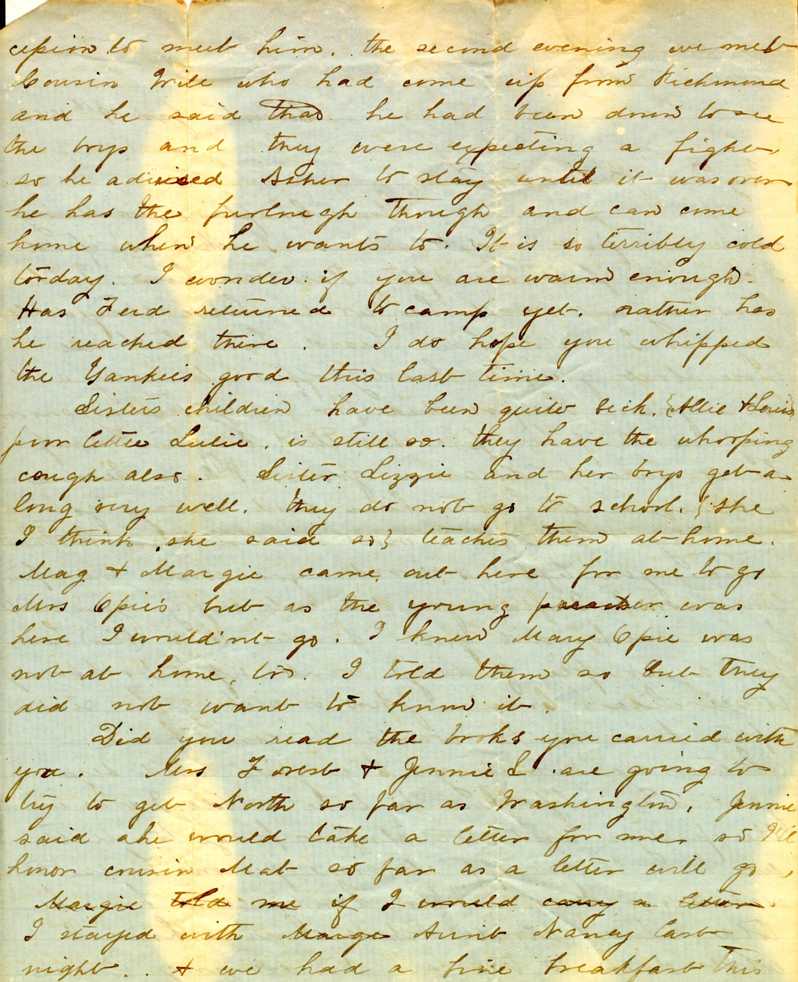 cepion to meet him. the second evening we met
Cousin Will who had come up from Richmond
and he said that he had been down to see
the boys and they were expecting a fight
so he adviced Asher to stay until it was over
he has the furlough though and can come
home when he wants to. It is so terribly cold
today. I wonder if you are warm enough.
Has Ferd returned to camp yet. rather has
he reached there. I do hope you whipped
the Yankees good this last time.
Sisters children have been quite sick. {Allie & Louis
poor little Lulie. is still so. they have the whooping
cough also. Sister Lizzie and her boys get a
long very well. they do not go to school. {she
I think she said so} teaches them at home.
Mag & Margie came out here for me to go
Mrs Opie's but as the young preacher was
here I would'nt go. I knew Mary Opie was
not at home, too. I told them so but they
did not want to know it.
Did you read the books you carried with
you. Mrs Forest & Jennie L. are going to
try to get North so far as Washington. Jennie
said she would take a letter for me. so I'll
honor cousin Mat so far as a letter will go,
Margie told me if I would carry a letter.
I stayed with Margie Aunt Nancy last
night.. & we had a fine breakfast this